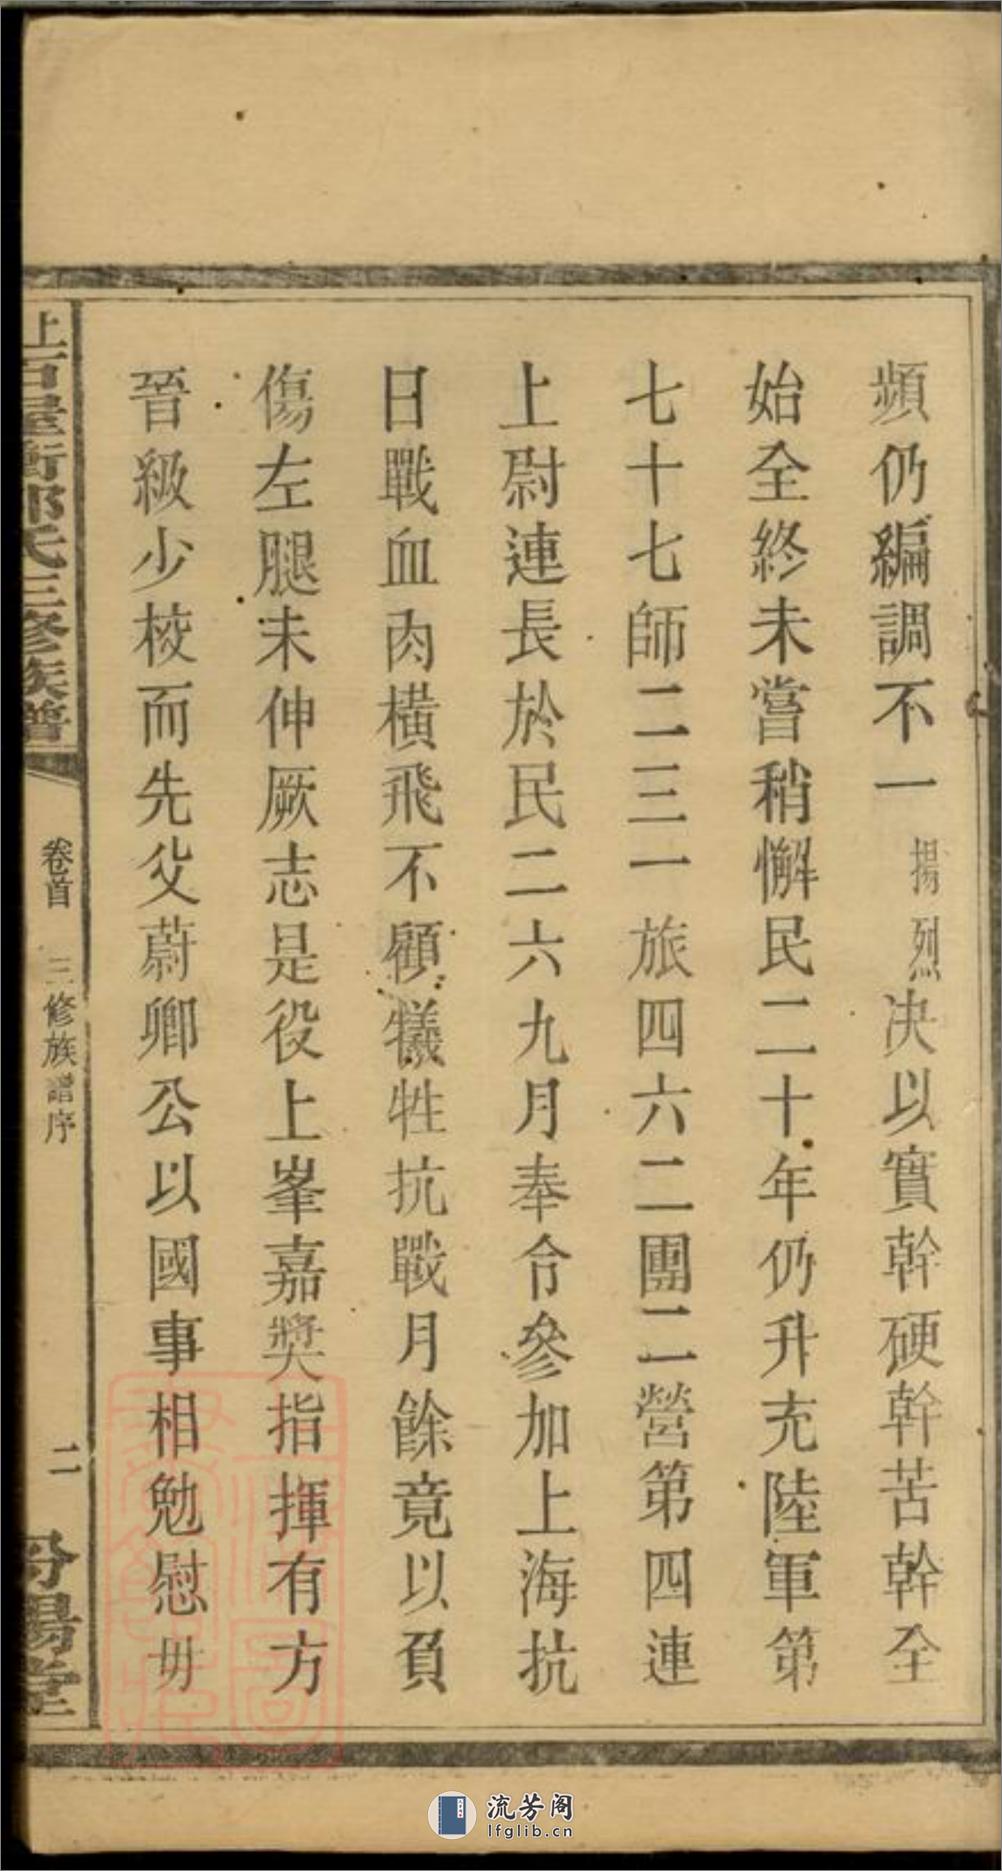 頻仍編調不一揚烈决以實幹硬幹苦幹全
始全終未嘗稍懈民二十年仍升充陸軍第
七十七師二三一旅四六二團二營第四連
上尉連長於民二六九月奉令參加上海抗
日戰血肉橫飛不顧犧牲抗戰月餘竟以負
傷左腿未伸厥志是役上峯嘉獎指揮有方
晉級少校而先父蔚卿公以國事相勉慰毋
郭氏三修族譜
卷首 三修族譜序
二
汾陽堂
流芳阁
lfglib.cn